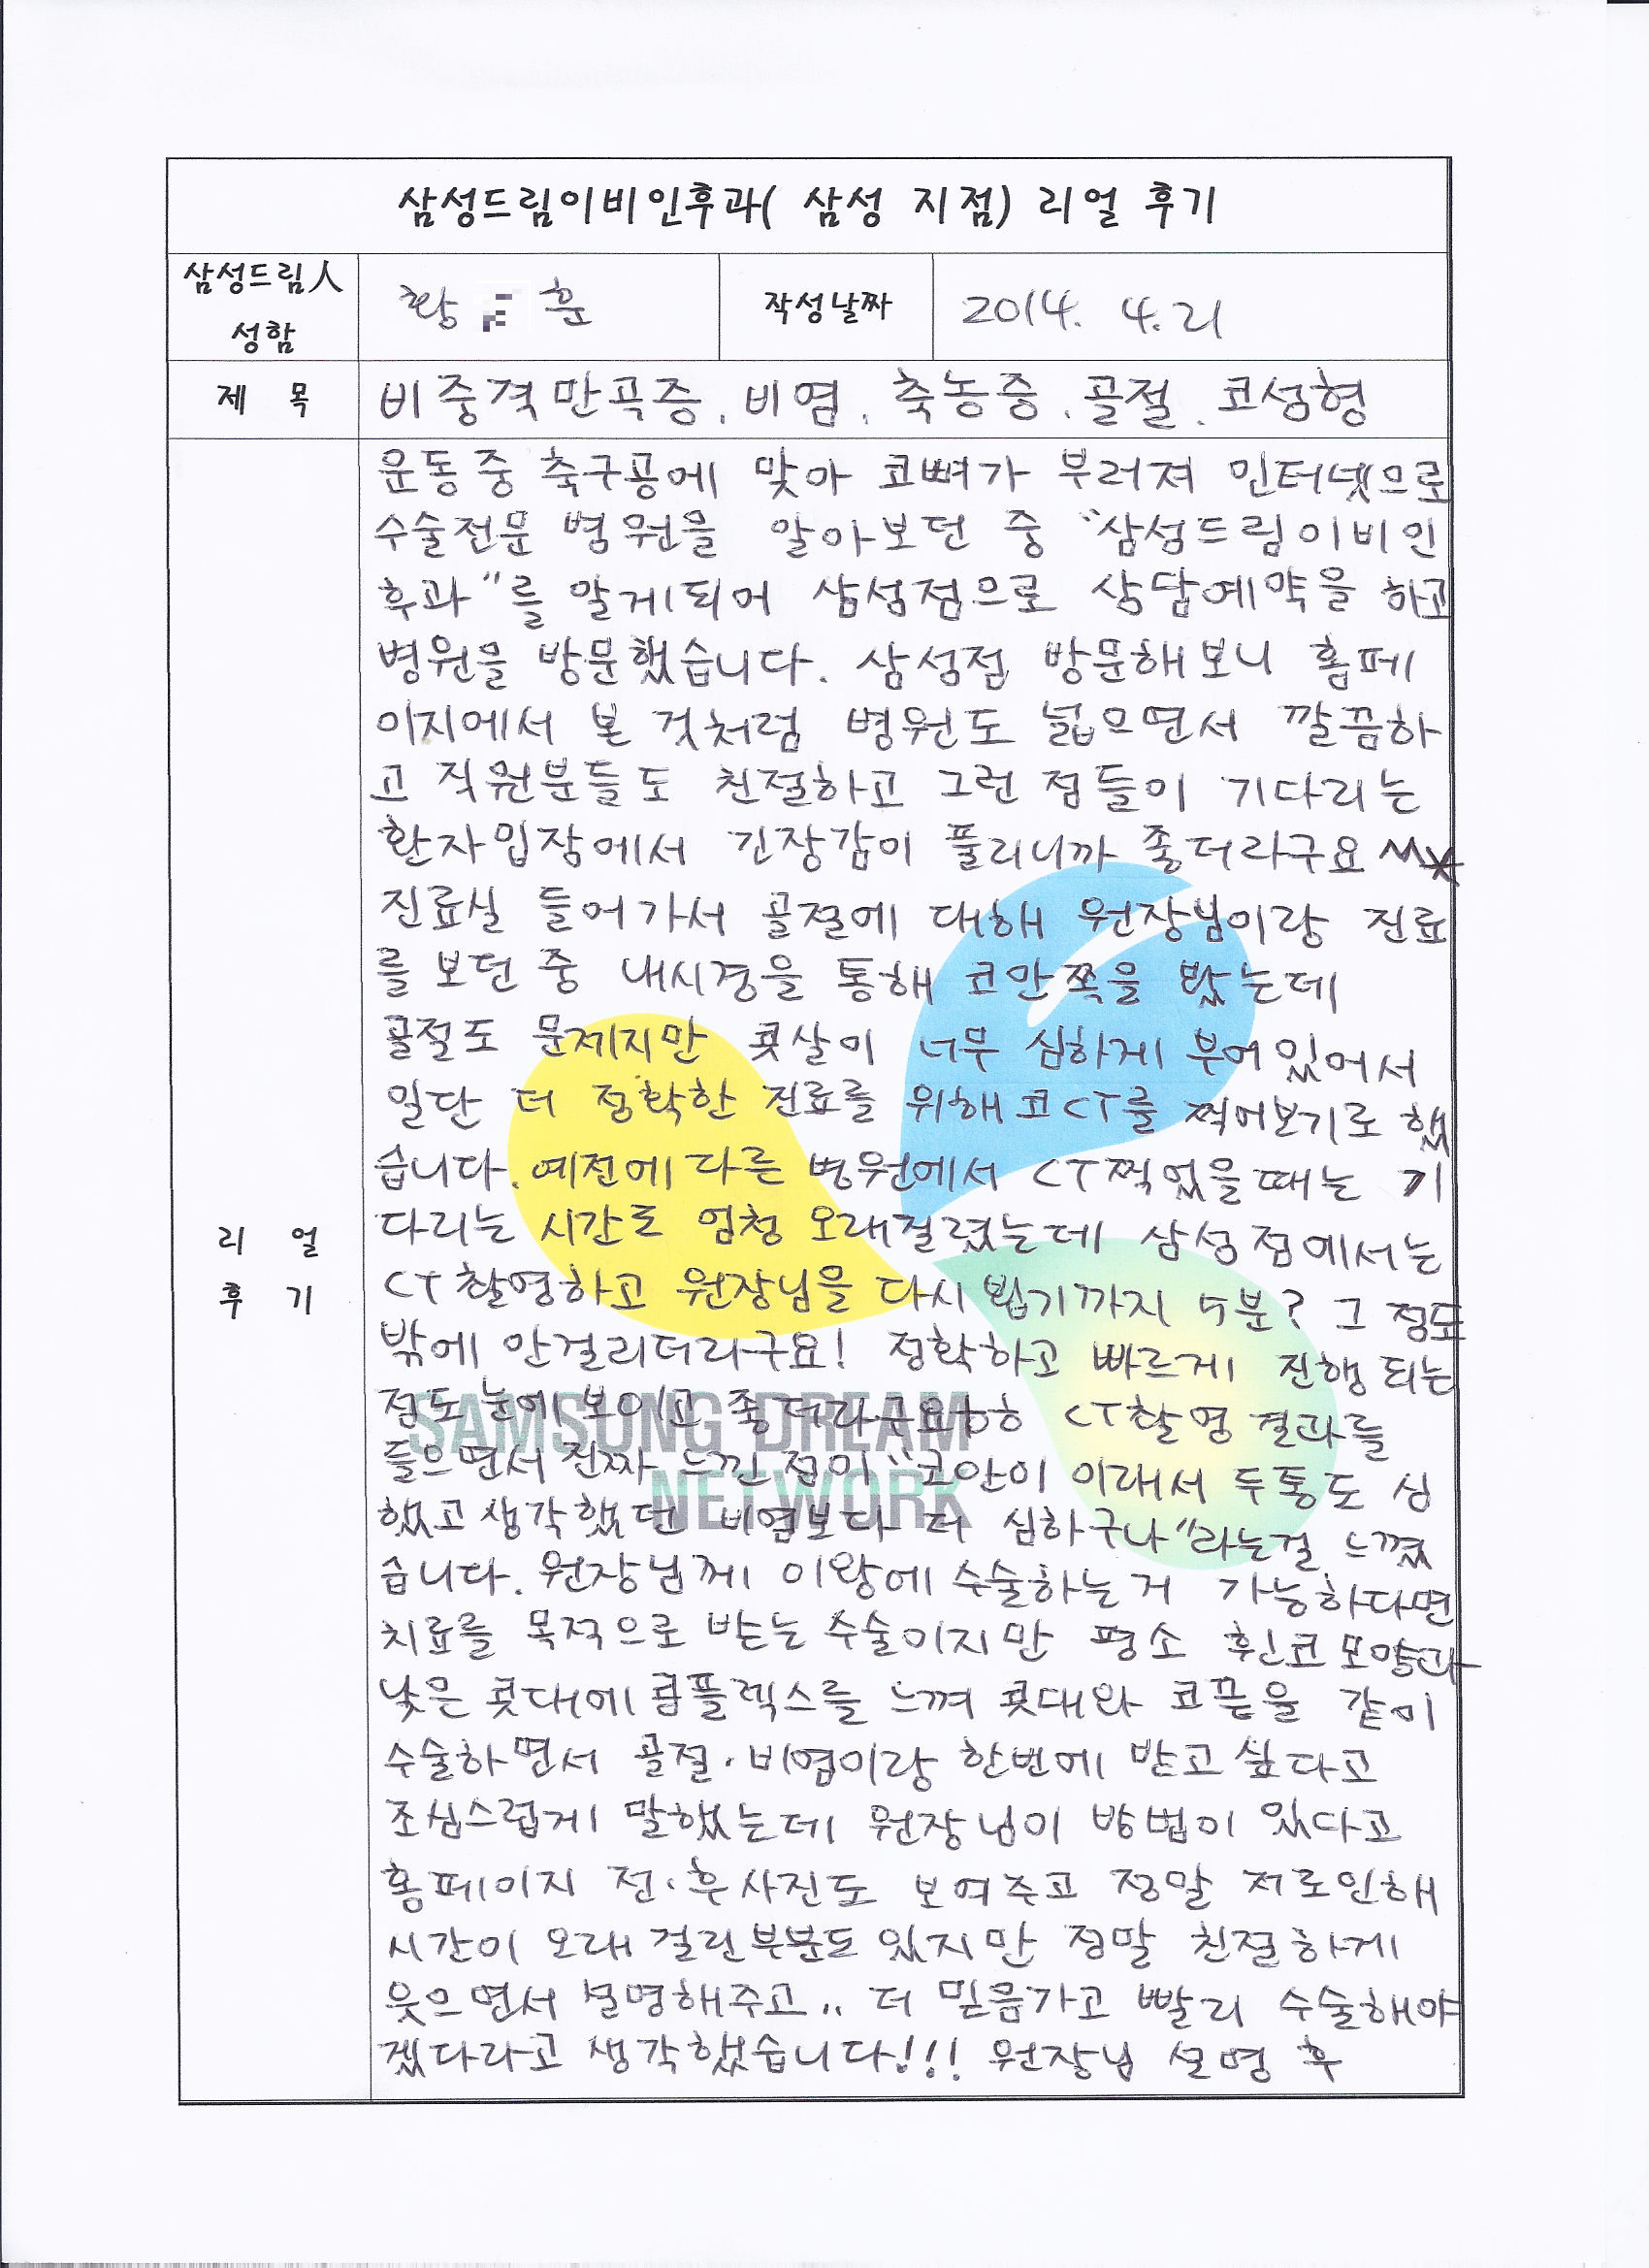 삼성드림이비인후과( 삼성 지점) 리얼 후기
삼성드림人
성함
황 훈
작성날짜
2014. 4. 21
제 목
비중격만곡증, 비염, 축농증, 골절, 코성형
리 얼
후 기
운동중 축구공에 맞아 코뼈가 부러져 인터넷으로
수술전문 병원을 알아보던 중 "삼성드림이비인
후과"를 알게되어 삼성점으로 상담예약을 하고
병원을 방문했습니다. 삼성점 방문해보니 홈페
이지에서 본 것처럼 병원도 넓으면서 깔끔하
고 직원분들도 친절하고 그런 점들이 기다리는
환자입장에서 긴장감이 풀리니까 좋더라구요
진료실 들어가서 골절에 대해 원장님이랑 진료
를 보던 중 내시경을 통해 코안쪽을 봤는데
골절도 문제지만 콧살이 너무 심하게 부어있어서
일단 더 정확한 진료를 위해 코CT를 찍어보기로 했
습니다. 예전에 다른 병원에서 CT찍었을때는 기
다리는 시간도 엄청 오래걸렸는데 삼성점에서는
CT촬영하고 원장님을 다시 뵙기까지 5분? 그 정도
밖에 안걸리더라구요! 정확하고 빠르게 진행되는
점도 눈에 보이고 좋더라구요ㅎㅎ CT촬영 결과를
들으면서 진짜 느낀점이 "코안이 이래서 두통도 심
했고 생각했던 비염보다 더 심하구나"라는걸 느꼈
습니다. 원장님께 이왕에 수술하는거 가능하다면
치료를 목적으로 받는 수술이지만 평소 휜코모양과
낮은 콧대에 콤플렉스를 느껴 콧대와 코끝을 같이
수술하면서 골절·비염이랑 한번에 받고싶다고
조심스럽게 말했는데 원장님이 방법이 있다고
홈페이지 전·후사진도 보여주고 정말 저로인해
시간이 오래 걸린부분도 있지만 정말 친절하게
웃으면서 설명해주고.. 더 믿음가고 빨리 수술해야
겠다라고 생각했습니다!!! 원장님 설명 후
SAMSUNG DREAM
NETWORK